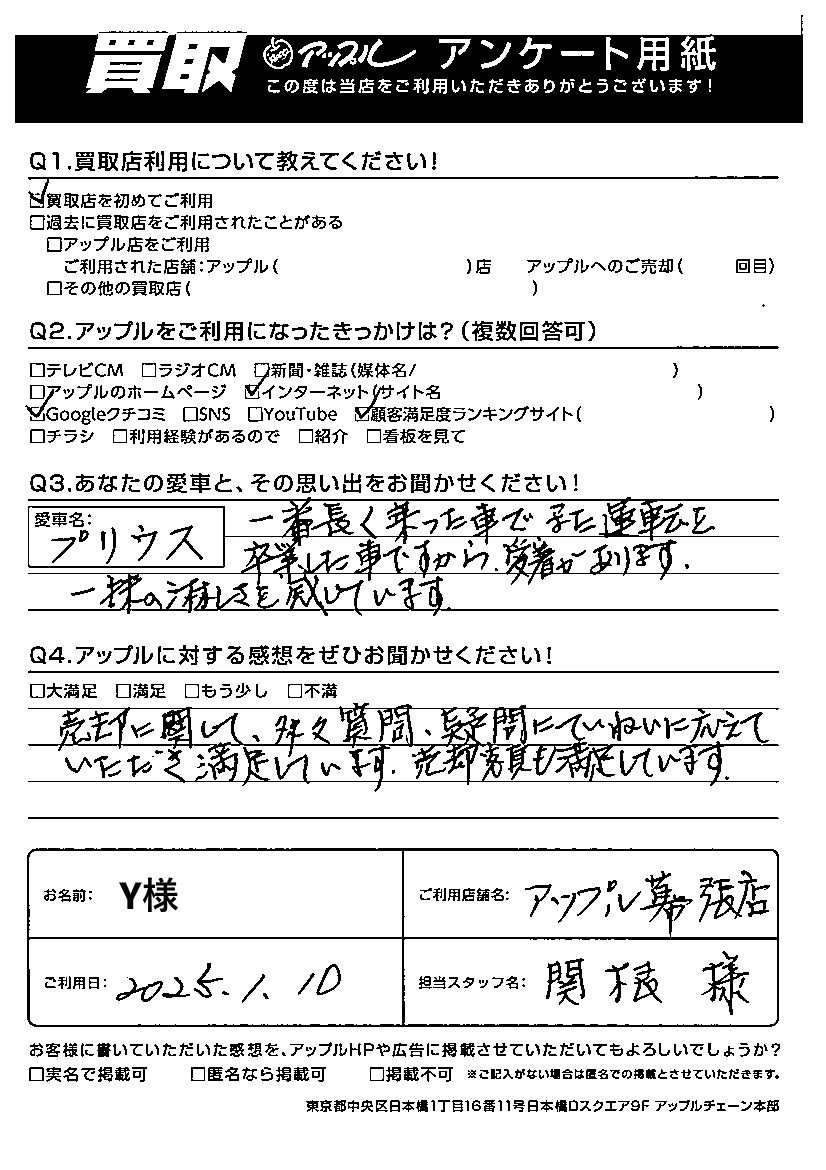 買取 アップル アンケート用紙
この度は当店をご利用いただきありがとうございます!
Q1.買取店利用について教えてください!
☑買取店を初めてご利用
□過去に買取店をご利用されたことがある
□アップル店をご利用
ご利用された店舗:アップル( )店 アップルへのご売却( 回目)
□その他の買取店( )
Q2.アップルをご利用になったきっかけは?(複数回答可)
□テレビCM □ラジオCM □新聞・雑誌(媒体名/ )
□アップルのホームページ ☑インターネット(サイト名 )
☑Googleクチコミ □SNS □YouTube ☑顧客満足度ランキングサイト( )
□チラシ □利用経験があるので □紹介 □看板を見て
Q3.あなたの愛車と、その思い出をお聞かせください!
愛車名: プリウス
一番長く乗った車で また運転を
卒業した車ですから、愛着があります。
一抹の淋しさを感じています。
Q4.アップルに対する感想をぜひお聞かせください!
□大満足 □満足 □もう少し □不満
売却に関して、多々質問、疑問にていねいに応えて
いただき満足しています。売却額も満足しています。
お名前: Y様 ご利用店舗名: アップル幕張店
ご利用日: 2025.1.10 担当スタッフ名: 関根 様
お客様に書いていただいた感想を、アップルHPや広告に掲載させていただいてもよろしいでしょうか?
□実名で掲載可 □匿名なら掲載可 □掲載不可 ※ご記入がない場合は匿名での掲載とさせていただきます。
東京都中央区日本橋1丁目16番11号日本橋Dスクエア9F アップルチェーン本部